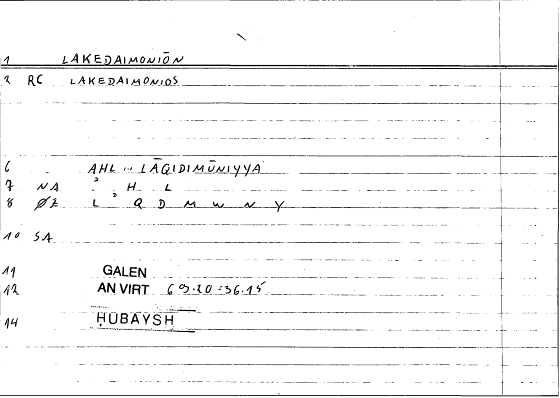 1 LAKEDAIMONIŌN
2 RC LAKEDAIMONIOS
6 AHL .. LĀQIDIMŪNIYYA
7 NA ʾ H L
8 ØZ L ʾ Q D M W N Y
10 SA
11 GALEN
12 AN VIRT 69.20=36.15
14 ḤUBAYSH